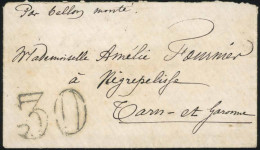 Par Ballon monté.
Mademoiselle Amélie Fournier
à Négrepelisse
Tarn-et-Garonne
30